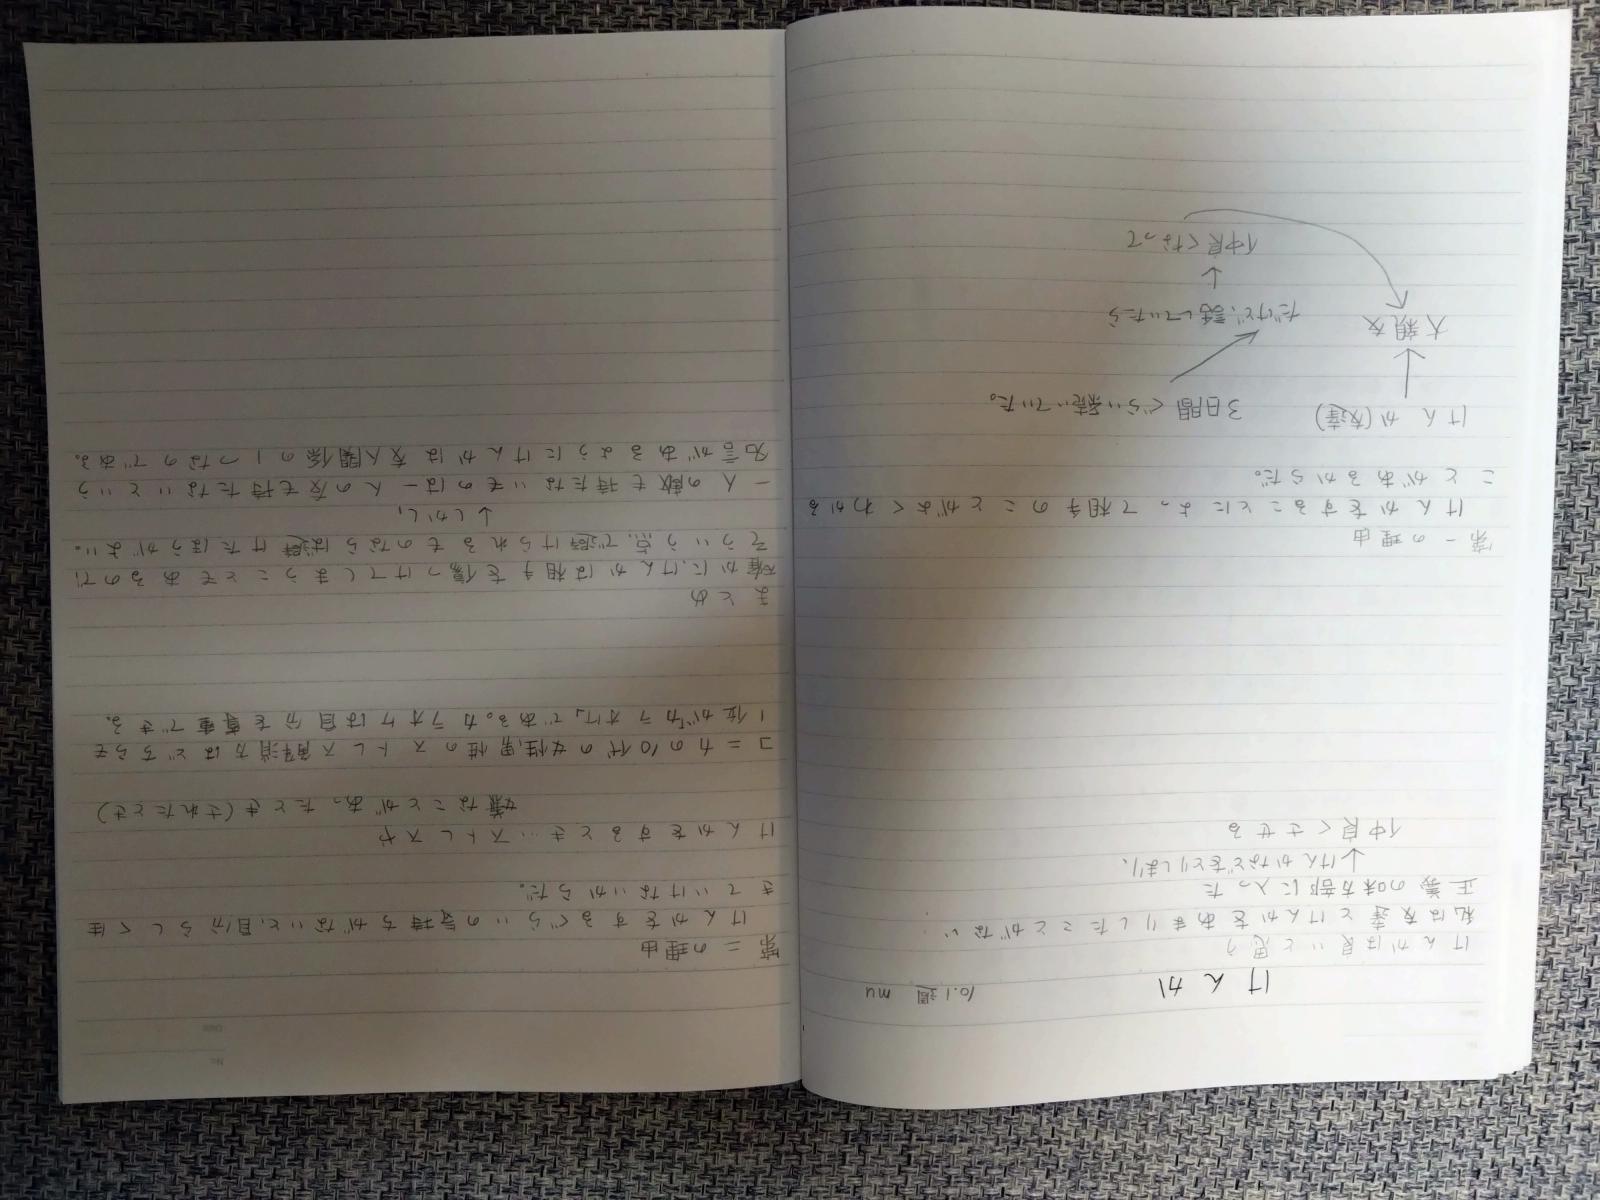 けんか
10.1週 mu
けんかは良いと思う
私は友達とけんかをあまりしたことがない
正義の味方部に入った
↓けんかなどをとりしまり、
仲良くさせる
第一の理由
けんかをすることによって相手のことがよくわかる
ことがあるからだ。
けんか(友達) 3日間ぐらい続いていた。
大親友 だけど、話していたら
↓
仲良くなって
No.
Date
第二の理由
けんかをするぐらいの気持ちがないと、自分らしく生
きていけないからだ。
けんかをするとき…ストレスや
嫌なことがあったとき(されたとき)
コ=カの10代の女性、男性のストレス解消方はどちらも
1位が「カラオケ」である。カラオケは自分を尊重できる。
まとめ
確かに、けんかは相手を傷つけてしまうこともあるので
そういう点で避けられるものならば避けたほうがよい。
↓しかし、
一人の敵も持たないものは一人の友も持たないという
名言があるようにけんかは友人関係の1つなのである。